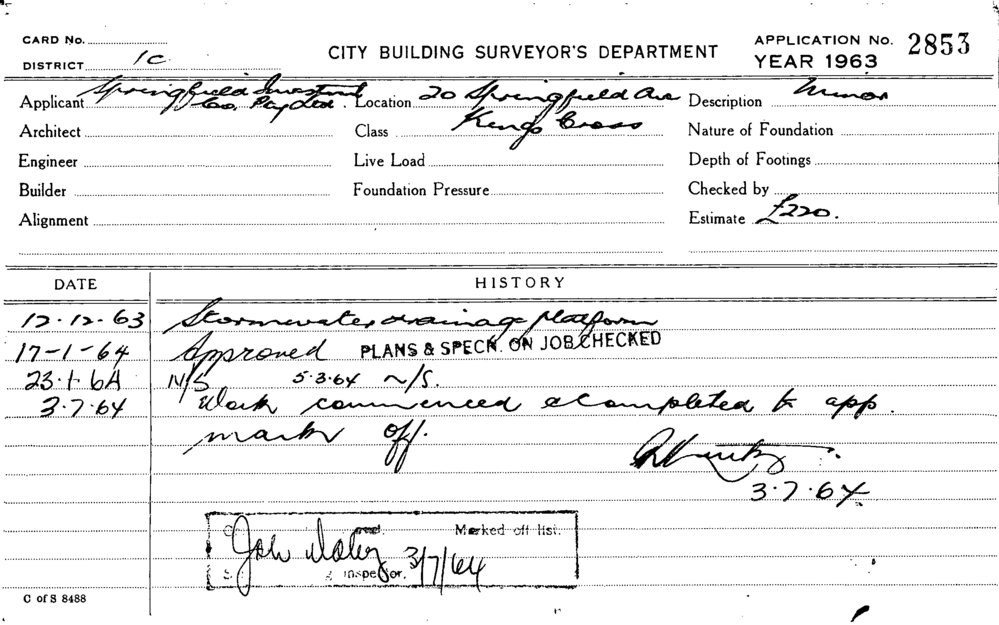 CARD No.
DISTRICT 1C
CITY BUILDING SURVEYOR'S DEPARTMENT
APPLICATION No. 2853
YEAR 1963
Applicant Springfield Investment
Co. Pty Ltd.
Location 20 Springfield Ave
Kings Cross
Description Minor
Architect
Class
Nature of Foundation
Engineer
Live Load
Depth of Footings
Builder
Foundation Pressure
Checked by
Alignment
Estimate £220.
DATE HISTORY
12.12.63 Stormwater drainage platform
17-1-64 Approved PLANS & SPECN. ON JOB CHECKED
23.1.64 N/S 5.3.64 N/S.
3.7.64 Work commenced & completed to app.
mark off.
3.7.64
Marked off list.
3/7/64
inspector.
C of S 8488